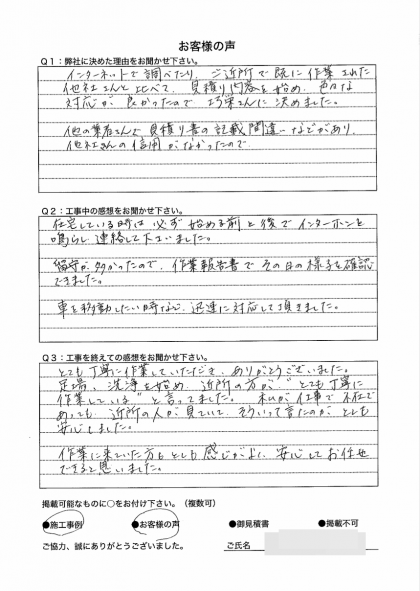 お客様の声
Q1：弊社に決めた理由をお聞かせ下さい。
インターネットで調べたり、ご近所で既に作業された
他社さんと比べて、見積り内容を始め、色々な
対応が良かったので 巧栄さんに決めました。
他の業者さんで見積り書の記載間違いなどがあり、
他社さんの信用がなかったので
Q2：工事中の感想をお聞かせ下さい。
在宅している時は必ず始める前と後でインターホンを
鳴らし連絡して下さいました。
留守が多かったので、作業報告書でその日の様子を確認
できました。
車を移動したい時など、迅速に対応して頂きました。
Q3：工事を終えての感想をお聞かせ下さい。
とても丁寧に作業していただき、ありがとうございました。
足場、洗浄を始め、近所の方が"とても丁寧に
作業している"と言ってました。私が仕事で不在で
あっても 近所の人が見ていて、そういって言たのが とても
安心しました。
作業に来ていた方もとても感じがよく、安心してお任せ
できると思いました。
掲載可能なものに○をお付け下さい。（複数可）
●施工事例 ●お客様の声 ●御見積書 ●掲載不可
ご協力、誠にありがとうございました。 ご氏名